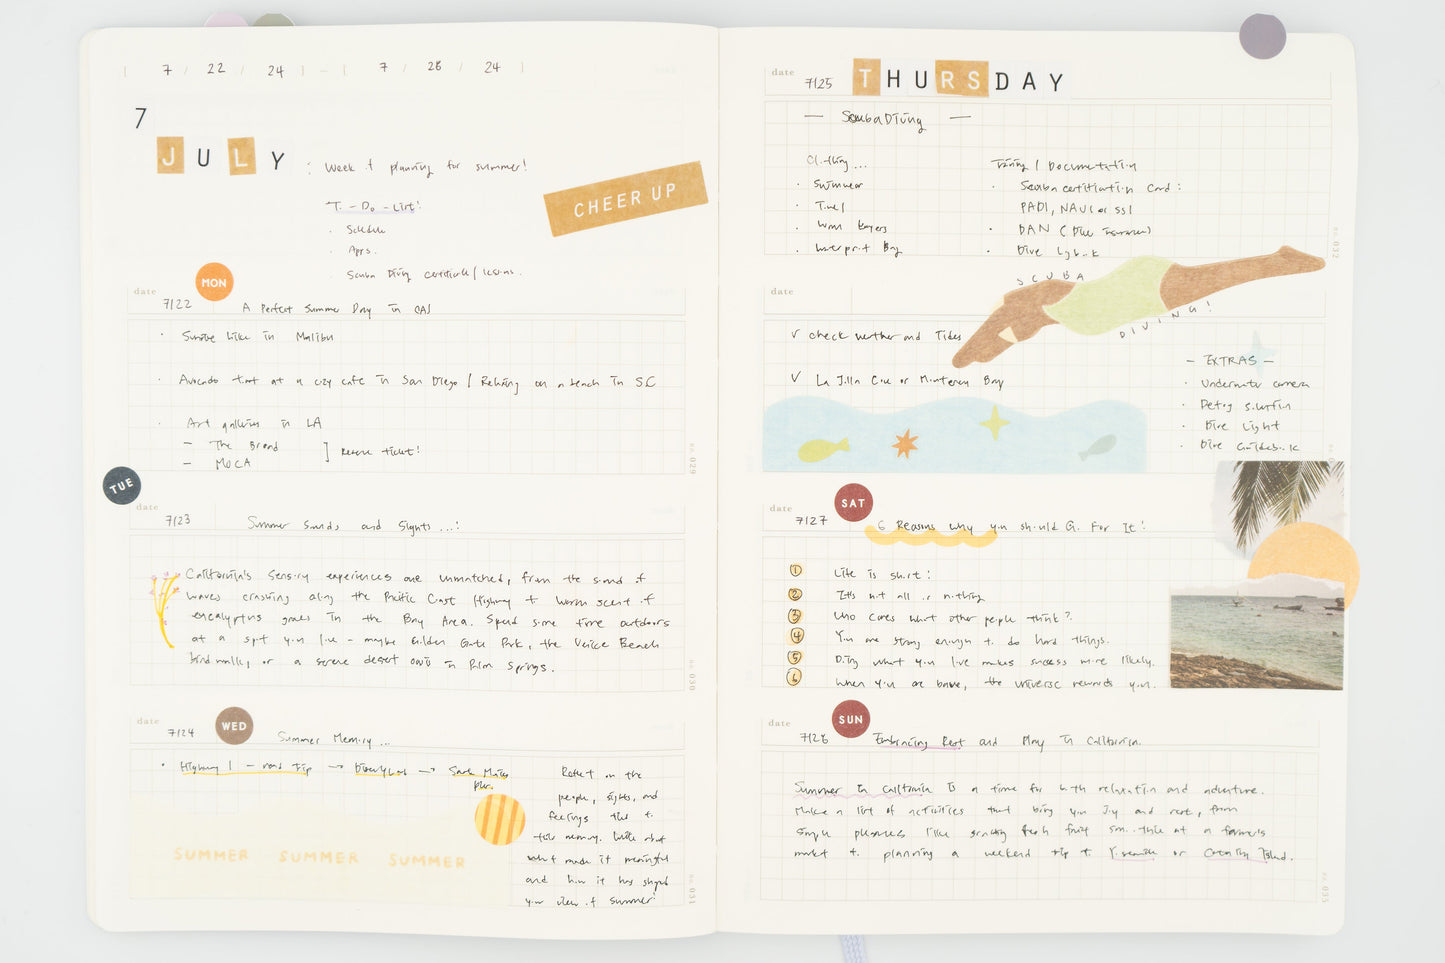 7 / 22 / 24 - 7 / 28 / 24
7
JULY : Week of planning for summer!
CHEER UP
To-Do-List:
· Schedule
· Apps.
· Scuba Diving certificate/lessons.
MON
date 7/22 A Perfect Summer Day in CA!
· Sunrise hike in Malibu
· Avocado toast at a cozy cafe in San Diego / Relaxing on a beach in SC
· Art galleries in LA
- The Broad
- MOCA
] Reserve ticket!
no. 029
TUE
date 7/23 Summer Sounds and Sights...:
California's sensory experiences are unmatched, from the sound of
waves crashing along the Pacific Coast Highway to warm scent of
eucalyptus groves in the Bay Area. Spend some time outdoors
at a spot you love - maybe Golden Gate Park, the Venice Beach
boardwalk, or a serene desert oasis in Palm Springs.
no. 030
WED
date 7/24 Summer Memory...
· Highway 1 - road trip → → Santa Monica
pier.
SUMMER SUMMER SUMMER
Reflect on the
people, sights, and
feelings tied to
this memory. Write about
what made it meaningful
and how it has shaped
your view of summer!
no. 031
date 7/25 THURSDAY
- Scuba Diving -
Clothing...
· Swimwear
· Towel
· Warm layers
· Waterproof Bag
Training / Documentation
· Scuba certification card:
PADI, NAUI or SSI
· DAN (Dive Insurance)
· Dive logbook
no. 032
SCUBA
DIVING!
date
✓ check weather and Tides
✓ La Jolla Cove or Monterey Bay
- EXTRAS -
· Underwater camera
· Dive Light
· Dive Guidebook
SAT
date 7/27 6 Reasons why you should Go For It:
1 Life is short:
2 It's not all or nothing
3 Who cares what other people think?
4 You are strong enough to do hard things.
5 Doing what you love makes success more likely.
6 When you are brave, the universe rewards you.
SUN
date 7/28 Embracing Rest and Play in California.
Summer in California is a time for both relaxation and adventure.
Make a list of activities that bring you joy and rest, from
simple pleasures like grabbing fresh fruit smoothie at a farmers
market to planning a weekend trip to Yosemite or Catalina Island.
no. 033